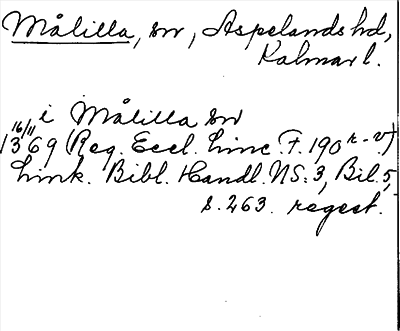 Målilla, sn, Aspelands hd,
Kalmar l.
i Målilla sn
16/11 1369 (Reg. Eccl. Linc. F. 190 r-v)
Link. Bibl. Handl. NS: 3, Bil. 5,
s. 263. regest.